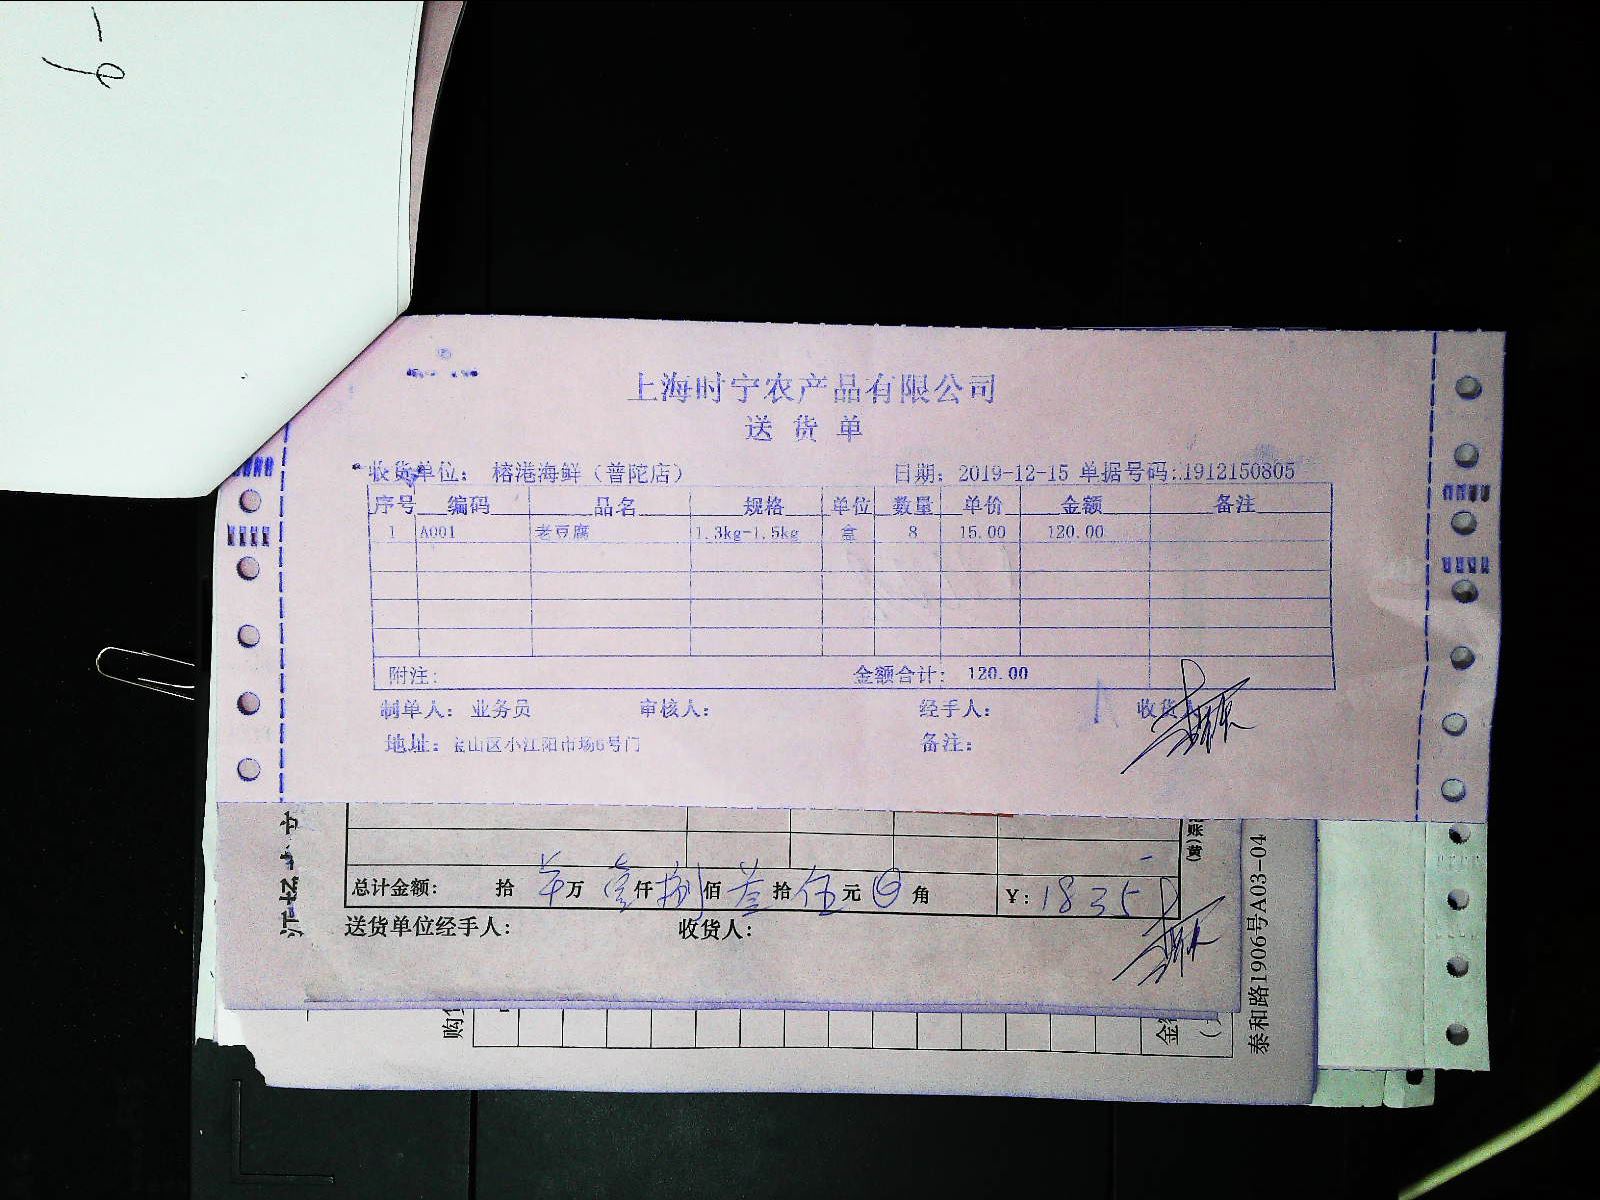 上海时宁农产品有限公司
送货单
收货单位: 榕港海鲜（普陀店） 日期: 2019-12-15 单据号码:1912150805
序号 编码 品名 规格 单位 数量 单价 金额 备注
1 A001 老豆腐 1.3kg-1.5kg 盒 8 15.00 120.00
附注: 金额合计: 120.00
制单人: 业务员 审核人: 经手人: 收货
地址: 宝山区小江阳市场6号门 备注:
总计金额: 拾 万 壹仟 捌佰 叁拾 伍元 角 ￥: 1835
送货单位经手人: 收货人:
泰和路1906号A03-04